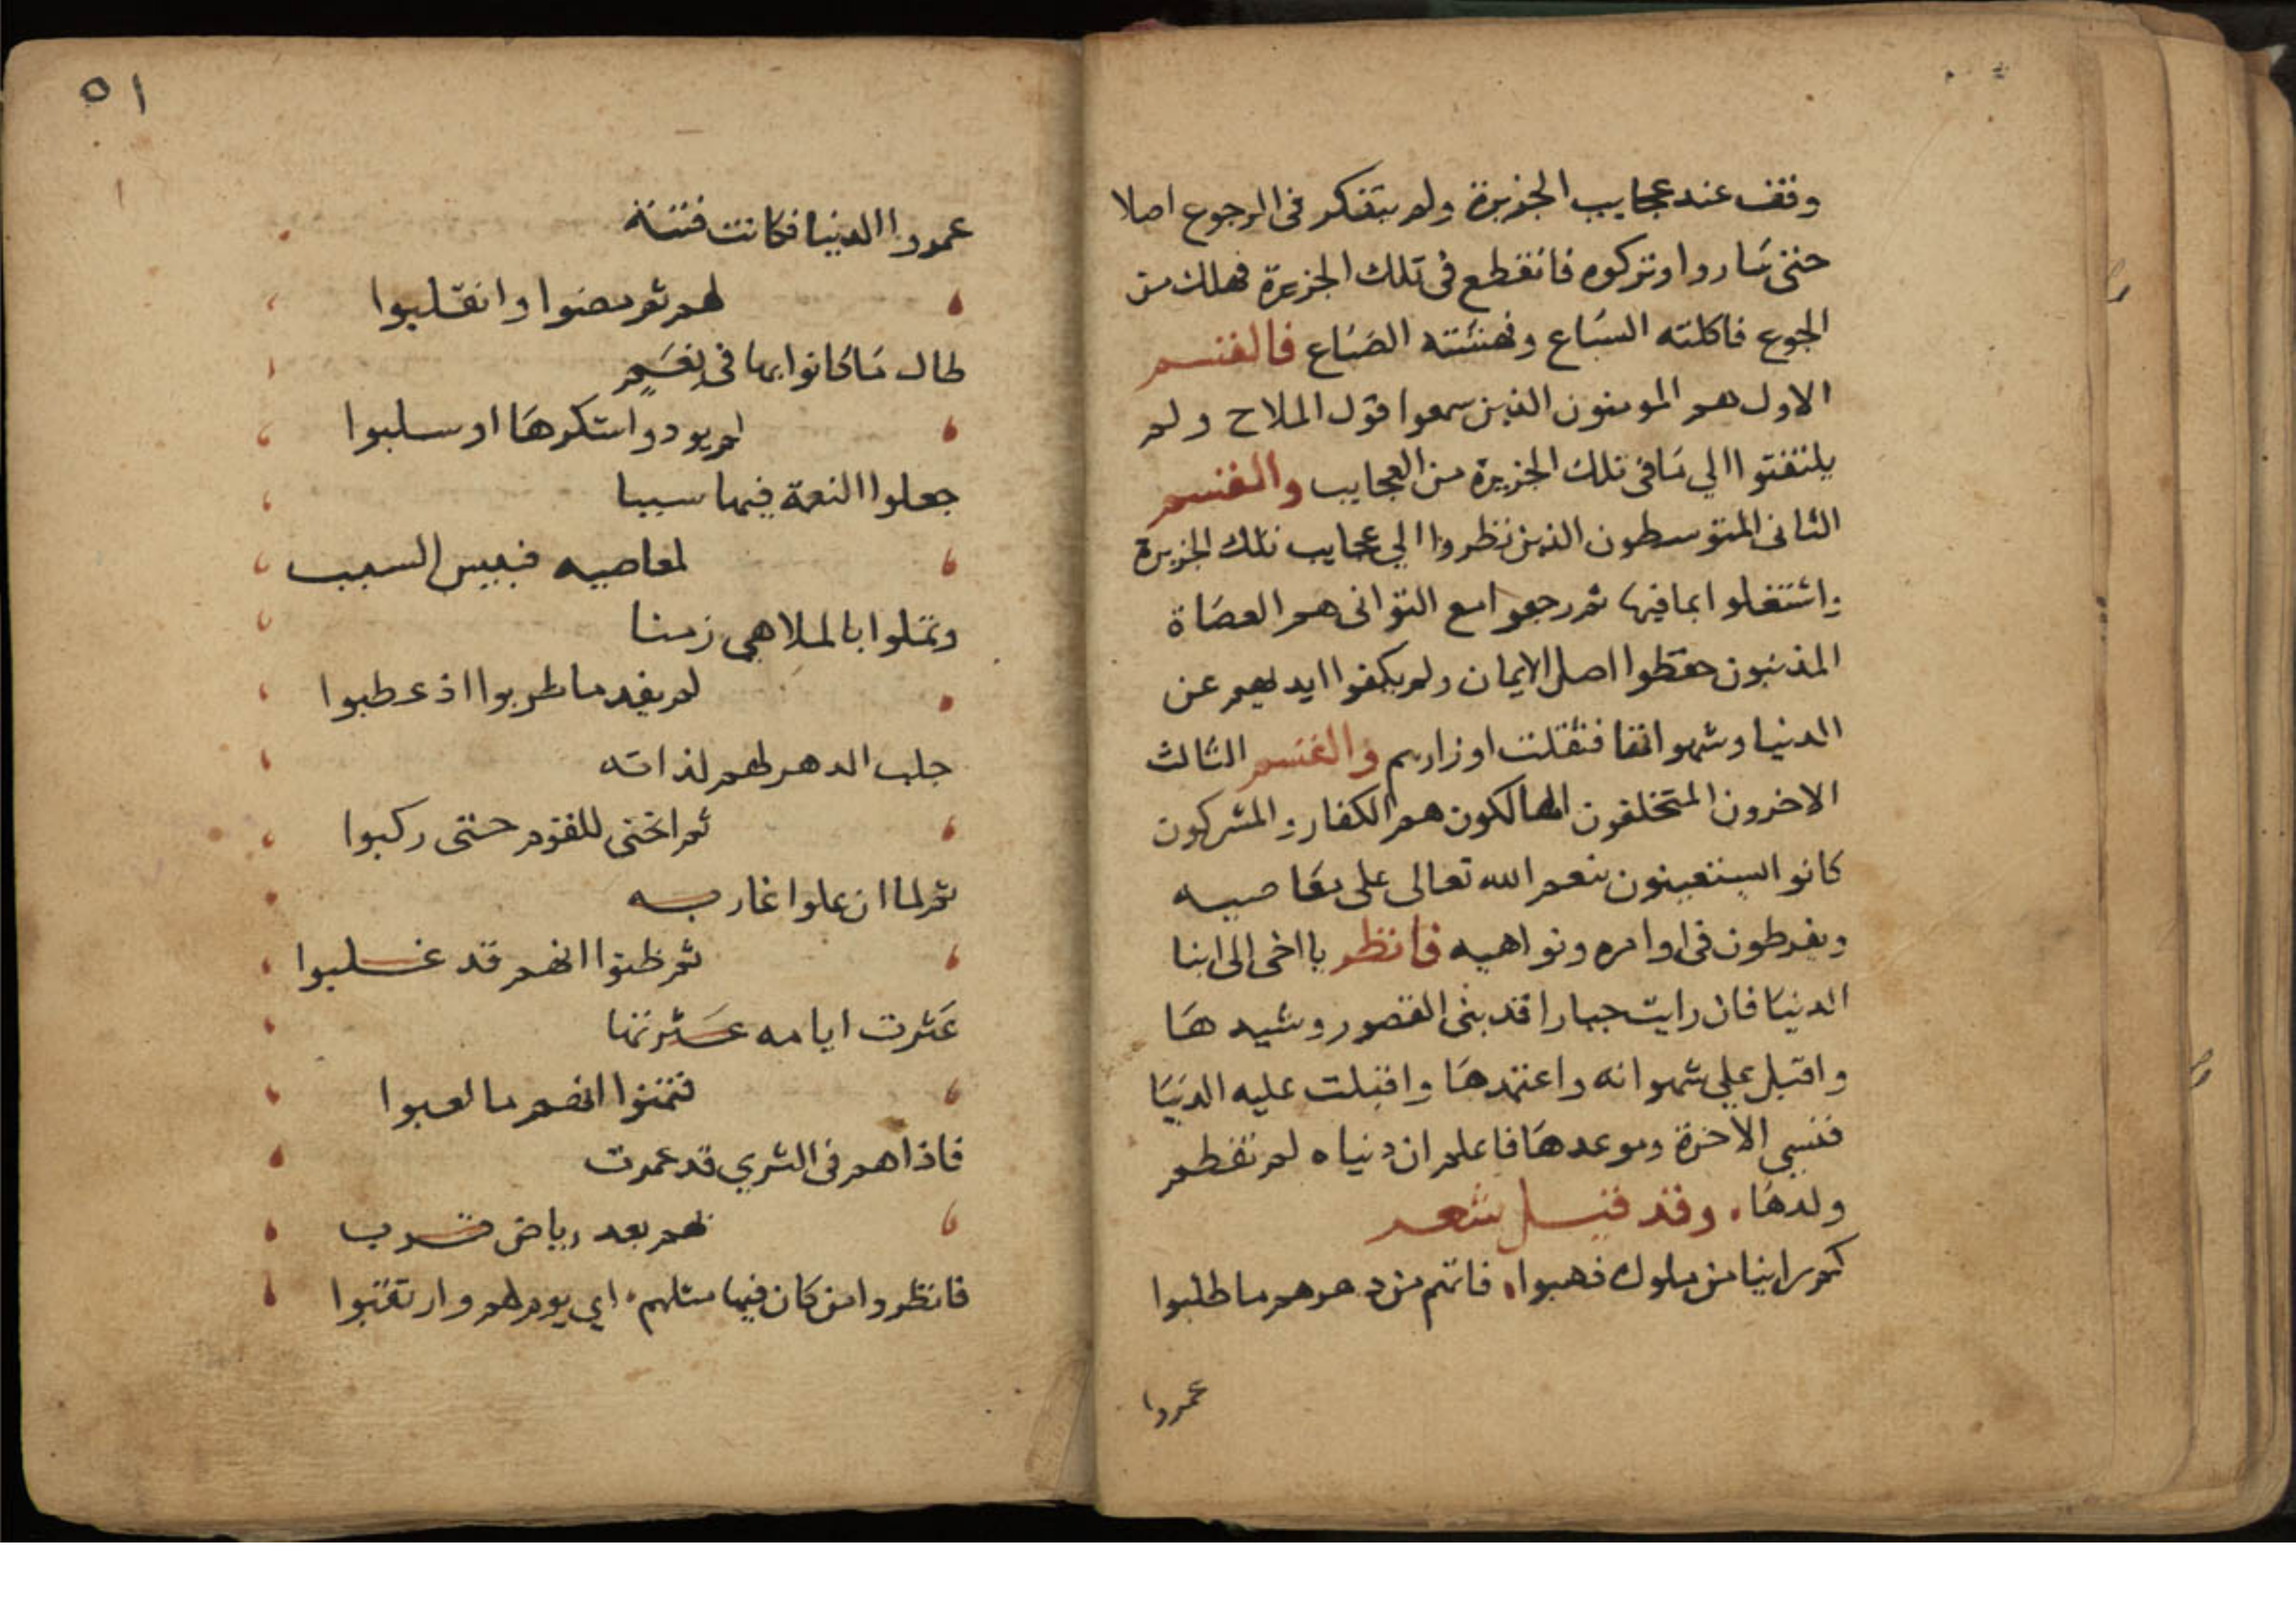 وقف عند عجايب الجزيرة ولم يتفكر فى الرجوع اصلا
حتى ساروا وتركوه فانقطع فى تلك الجزيرة فهلك من
الجوع فاكلته السباع ونهشته الضباع فالقسم
الاول هم المومنون الذين سمعوا قول الملاح ولم
يلتفتوا الي ما فى تلك الجزيرة من العجايب والقسم
الثانى المتوسطون الذين نظروا الي عجايب تلك الجزيرة
واشتغلوا بما فيها ثم رجعوا مع التوانى هم العصاة
المذنبون حفظوا اصل الايمان ولم يكفوا ايديهم عن
الدنيا وشهواتها فثقلت اوزارهم والقسم الثالث
الاخرون المتخلفون الهالكون هم الكفار والمشركون
كانوا يستعينون بنعم الله تعالى على معاصيه
ويفرطون فى اوامره ونواهيه فانظر يا اخى الى ابنا
الدنيا فان رايت جبارا قد بنى القصور وشيدها
واقبل علي شهواته واعتمدها واقبلت عليه الدنيا
فنسي الاخرة وموعدها فاعلم ان دنياه لم تفطم
ولدها وقد قيل شعر
كم راينا من ملوك ذهبوا فاتهم من دهرهم ما طلبوا
عمروا
٥١
عمروا الدنيا فكانت فتنة
لهم ثم مضوا وانقلبوا
طال ما كانوا بها فى نعم
لم يودوا شكرها او سلبوا
جعلوا النعمة فيها سببا
لمعاصيه فبيس السبب
وتملوا بالملاهي زمنا
لم يفد ما طربوا اذ عطبوا
جلب الدهر لهم لذاته
ثم انحنى للقوم حتى ركبوا
ثم لما ان علوا غاربه
ثم ظنوا انهم قد غلبوا
عثرت ايامه عثرتها
فتمنوا انهم ما لعبوا
فاذا هم فى الثري قد عمرت
لهم بعد رياض ترب
فانظروا من كان فيها مثلهم اي يوم لهم وارتقبوا